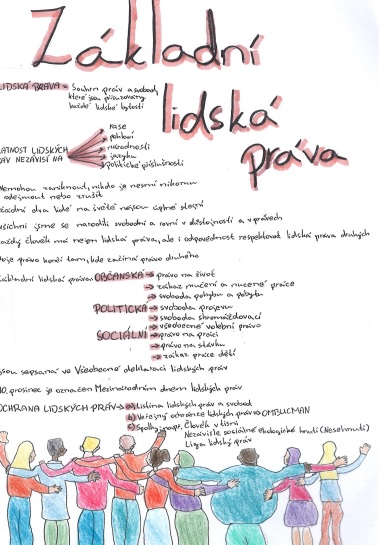 Základní
lidská
práva
LIDSKÁ PRÁVA = Souhrn práv a svobod,
které jsou přisuzovány
každé lidské bytosti
LATNOST LIDSKÝCH
ÁV NEZÁVISÍ NA
rase
pohlaví
národnosti
jazyku
politické příslušnosti
Nemohou zaniknout, nikdo je nesmí nikomu
odejmout nebo zrušit
Žádní dva lidé na světě nejsou úplně stejní
všichni jsme se narodili svobodní a rovni v důstojnosti a v právech
každý člověk má nejen lidská práva, ale i odpovědnost respektovat lidská práva druhých
Moje právo končí tam, kde začíná právo druhého
Základní lidská práva OBČANSKÁ → právo na život
→ zákaz mučení a nucené práce
→ svoboda pohybu a pobytu
POLITICKÁ → svoboda projevu
→ svoboda shromažďovací
→ všeobecné volební právo
SOCIÁLNÍ → právo na práci
→ právo na stávku
→ zákaz práce dětí
jsou sepsána ve Všeobecné deklaraci lidských práv
10. prosinec je označen Mezinárodním dnem lidských práv
OCHRANA LIDSKÝCH PRÁV → a) Listina lidských práv a svobod
b) Veřejný ochránce lidských práv = OMBUCMAN
c) Spolky např. Člověk v tísni
Nezávislé sociálně ekologické hnutí (Nesehnutí)
Liga lidských práv